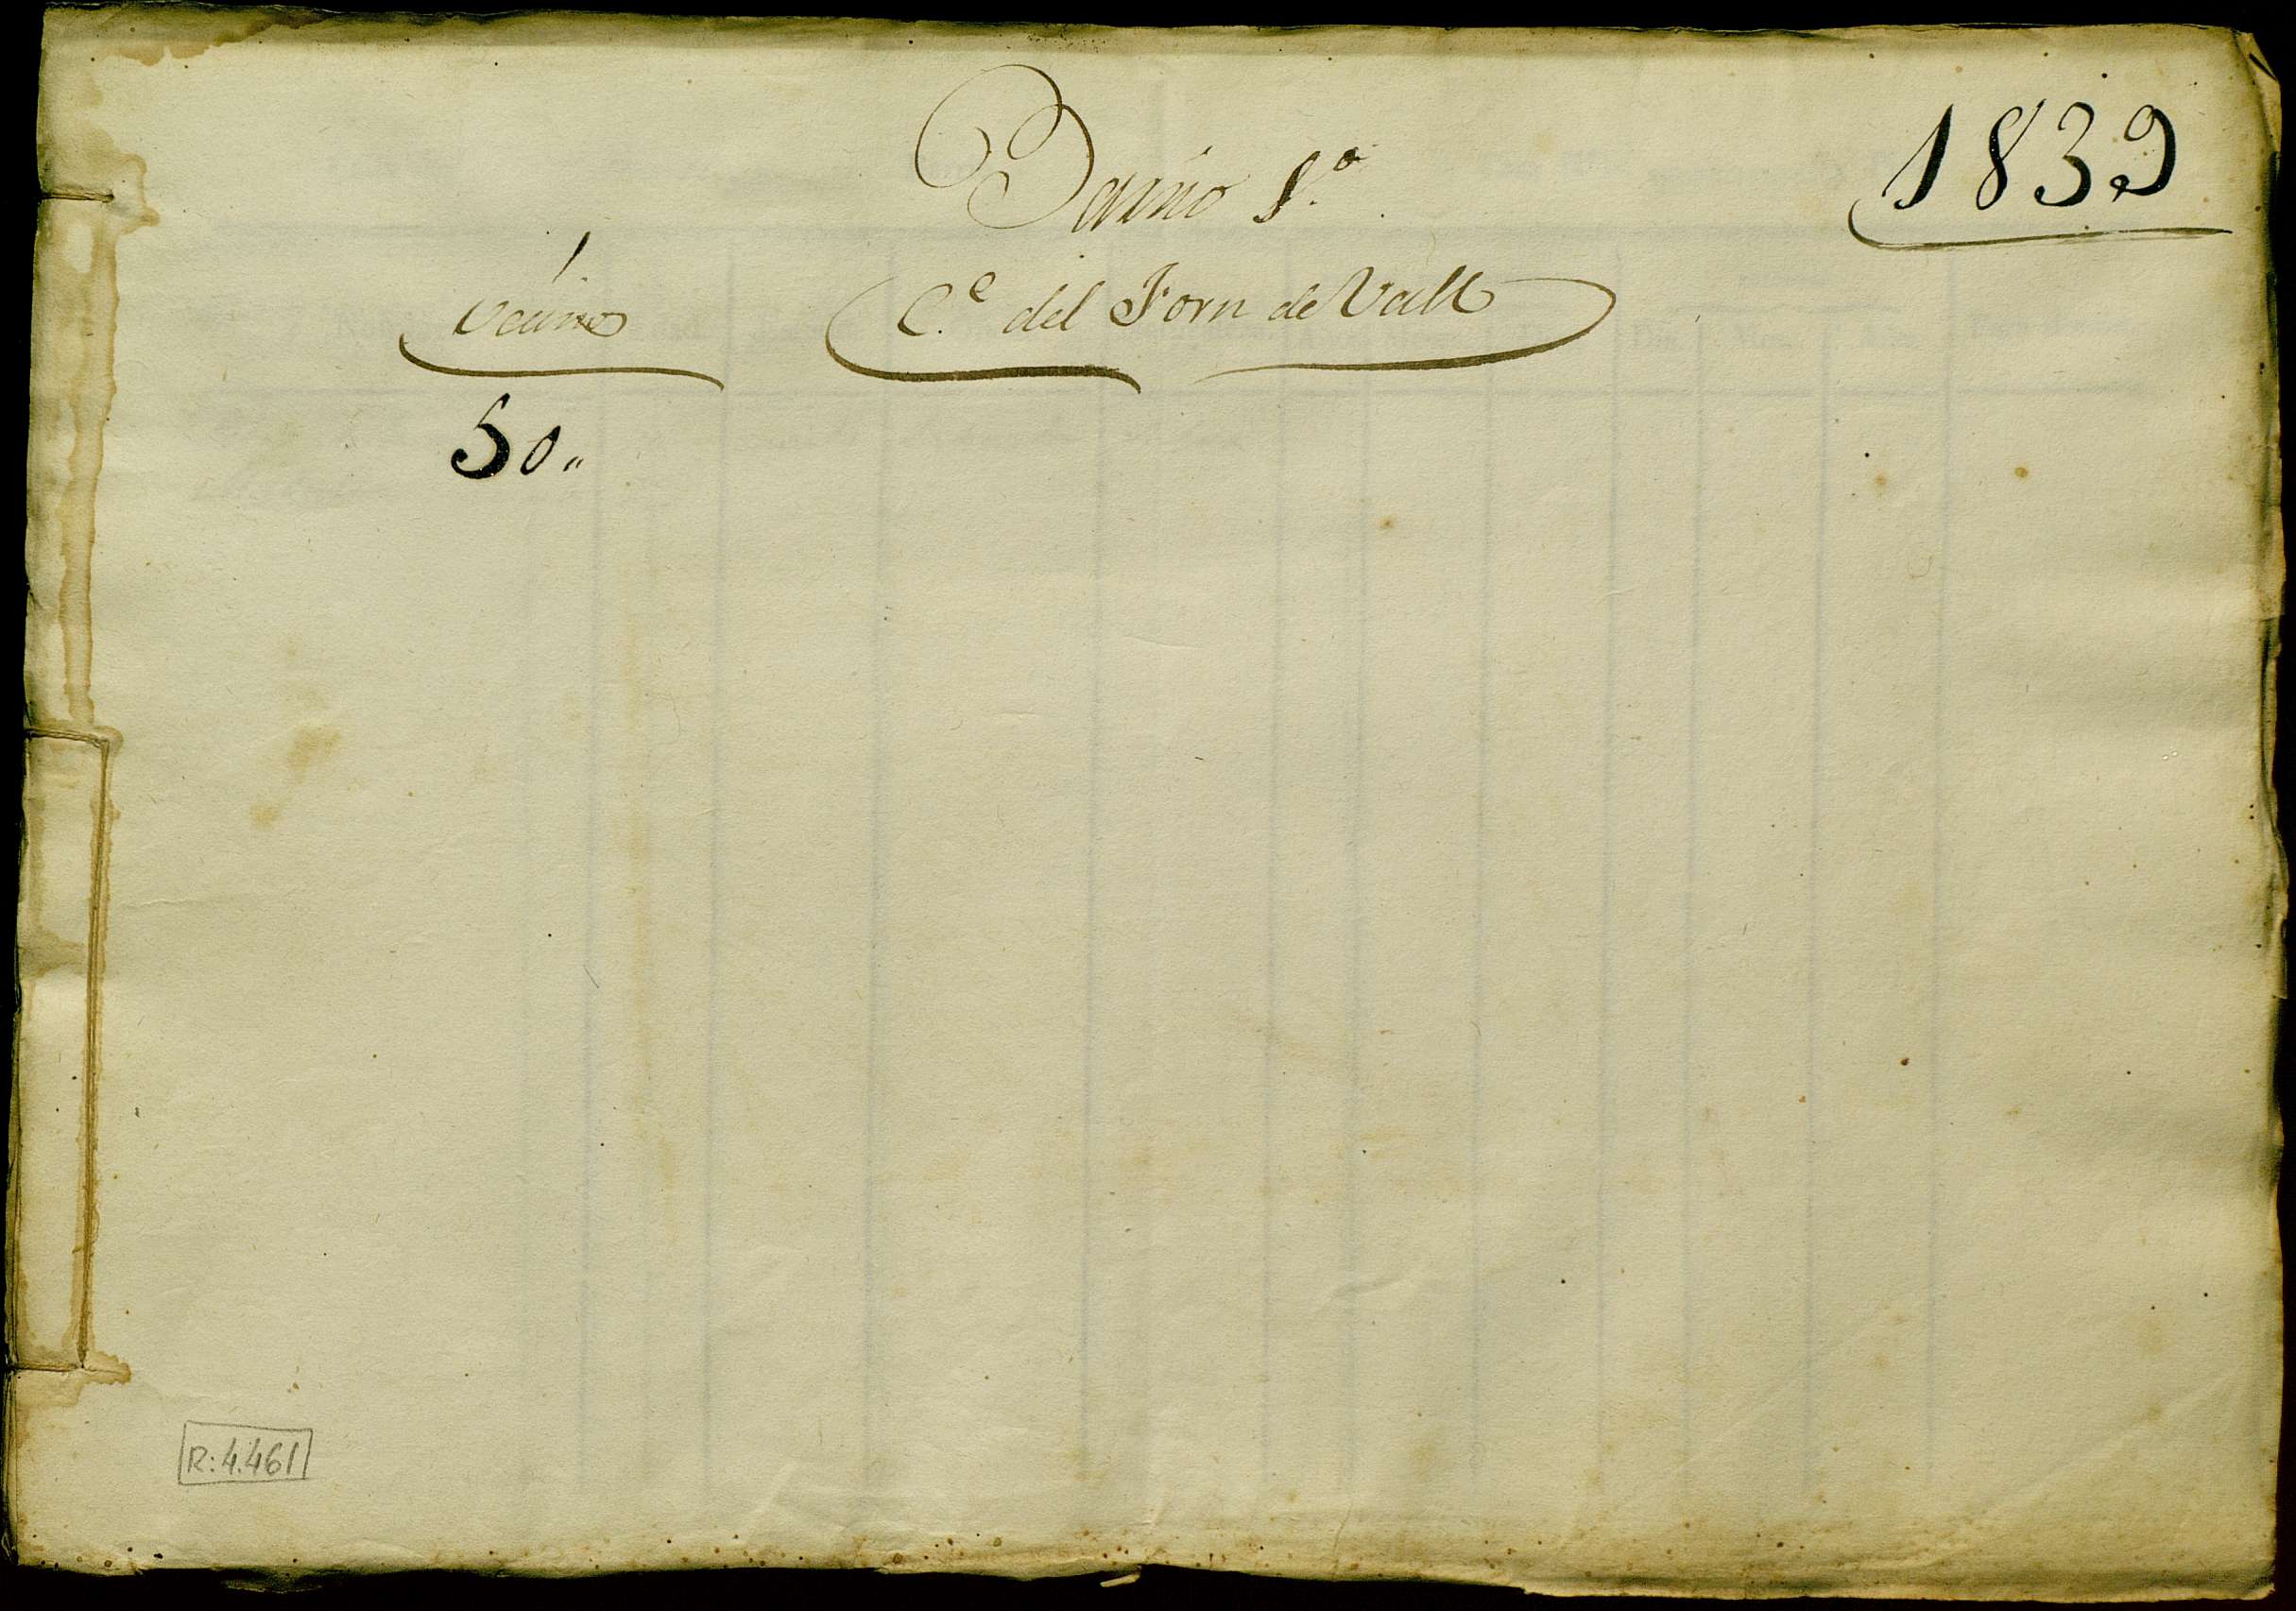 Barrio 1.º
1839
Vecinos
C.e del Forn de Vall
50„
R: 4.461